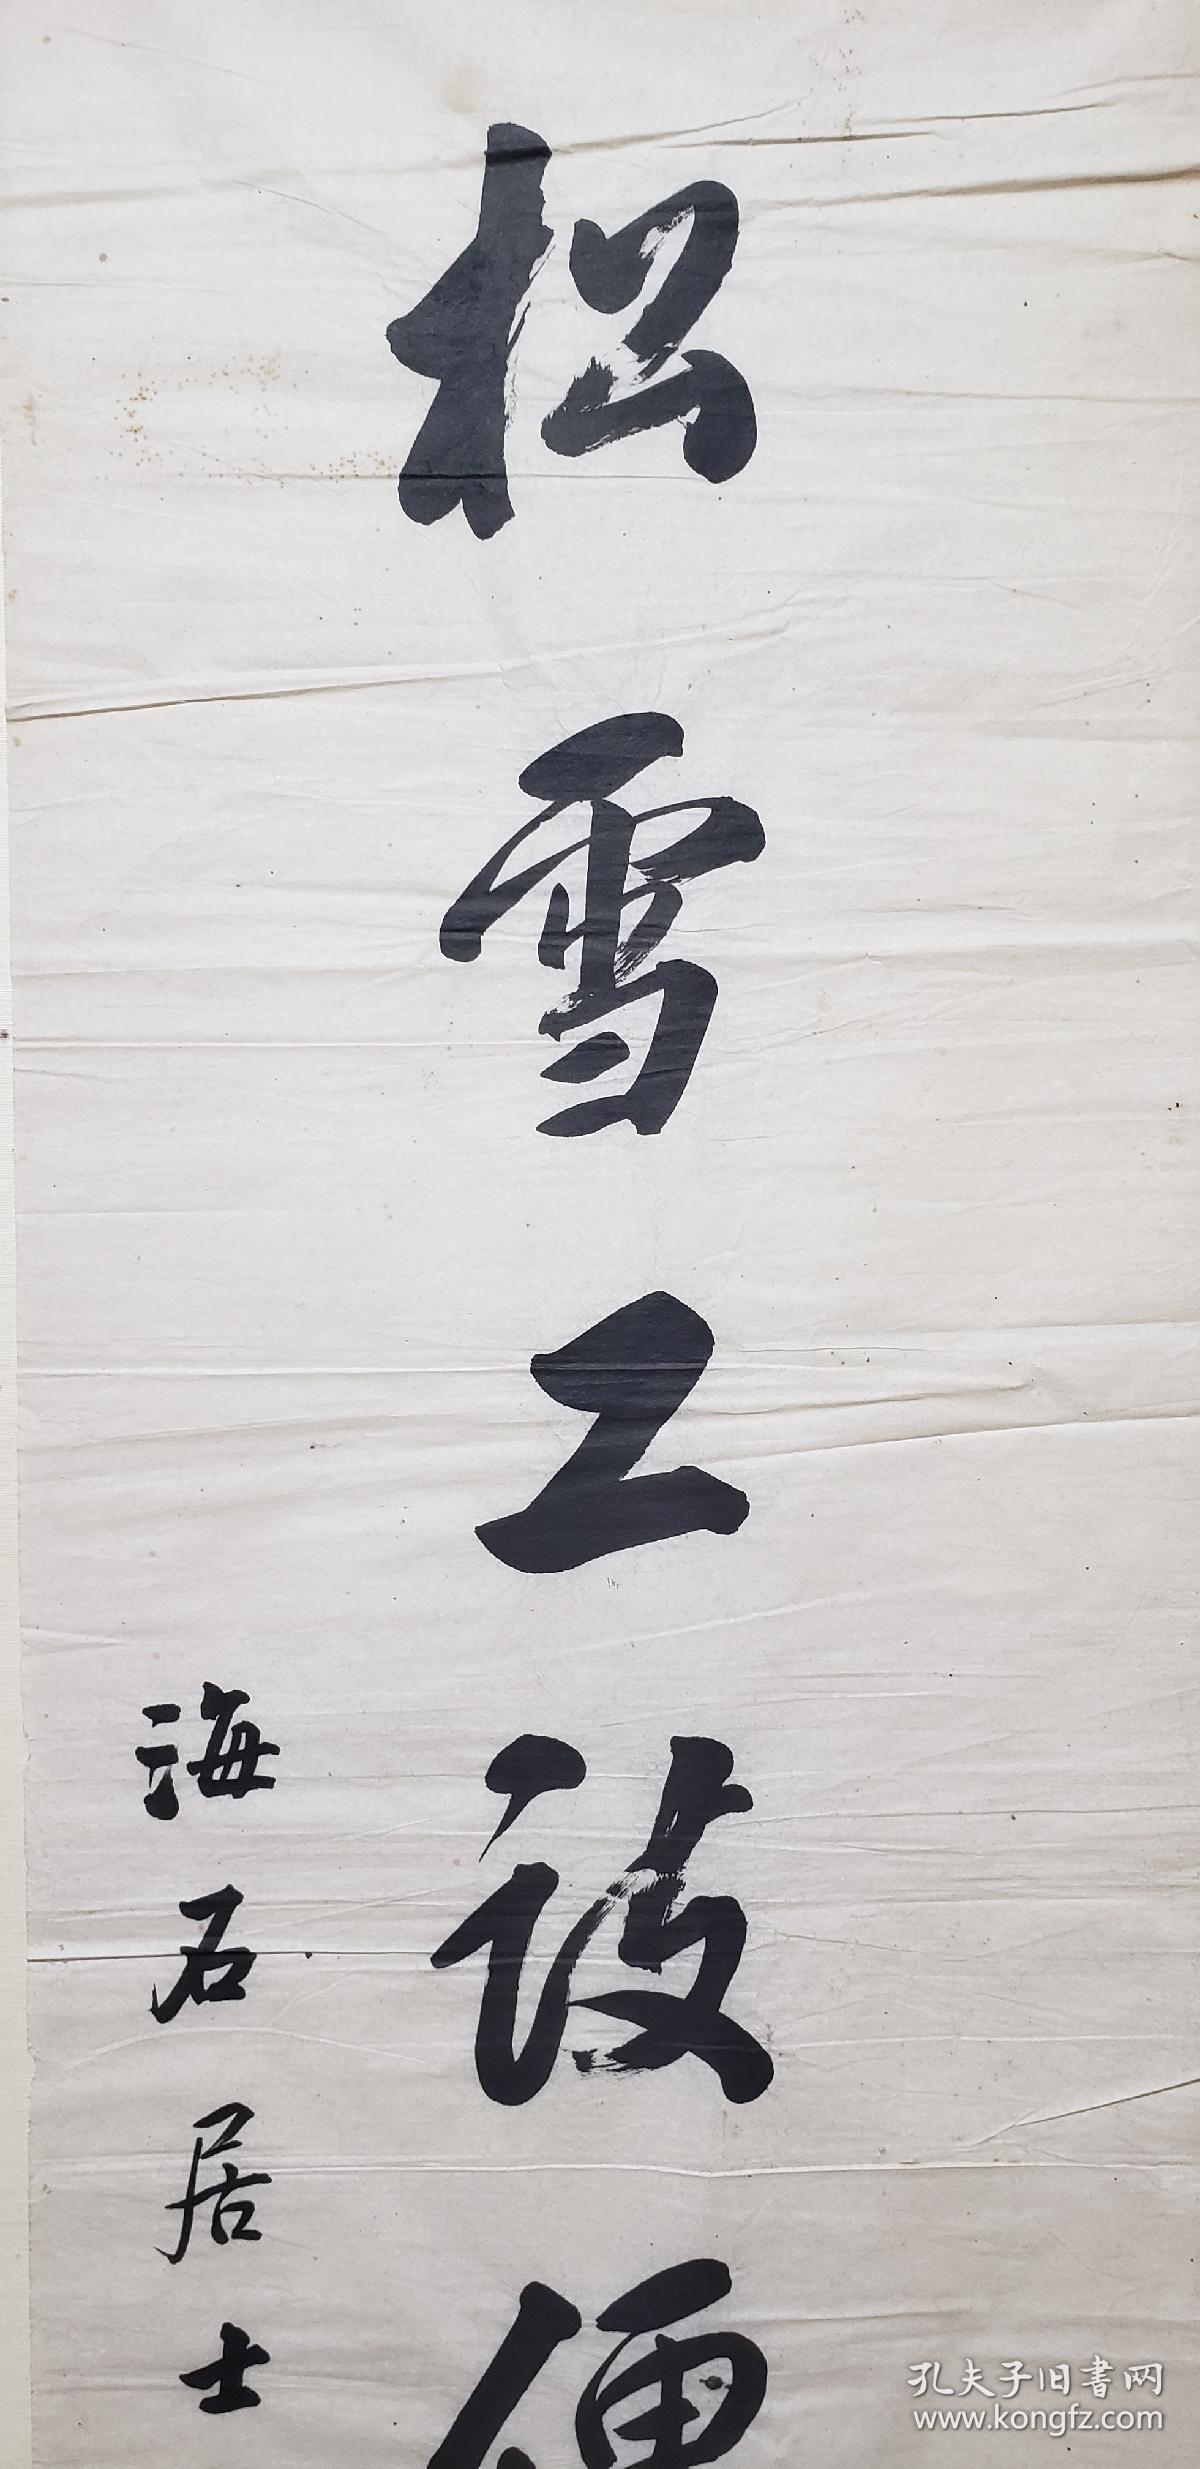 松雪工設便
海石居士
孔夫子旧書网
www.kongfz.com